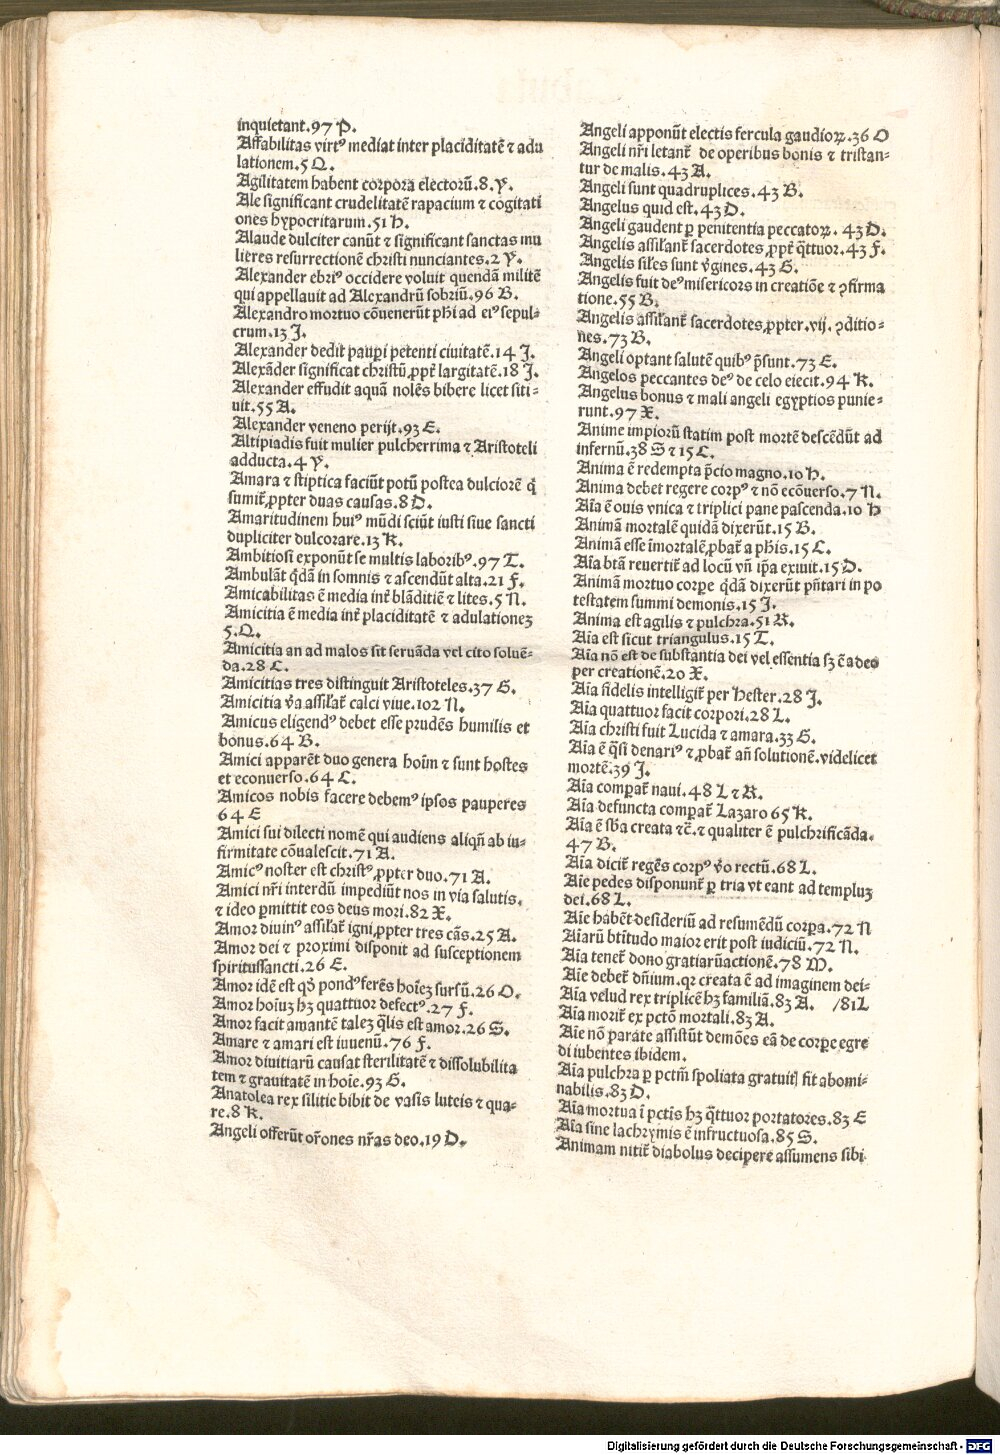 inquietant.97 P.
Affabilitas virtꝰ mediat inter placiditatē ⁊ adu
lationem.5 Q.
Agilitatem habent corpora electorū.8.Y.
Ale significant crudelitatē rapacium ⁊ cogitati
ones hypocritarum.51 H.
Alaude dulciter canūt ⁊ significant sanctas mu
lieres resurrectionē christi nunciantes.2 Y.
Alexander ebriꝰ occidere voluit quendā militē
qui appellauit ad Alexandrū sobriū.96 B.
Alexandro mortuo cōuenerūt phi ad eiꝰ sepul-
crum.13 J.
Alexander dedit paupi petenti ciuitatē.14 J.
Alexāder significat christū ꝓpt̄ largitatē.18 J.
Alexander effudit aquā nolēs bibere licet siti-
uit.55 A.
Alexander veneno perijt.93 E.
Altipiadis fuit mulier pulcherrima ⁊ Aristoteli
adducta.4 Y.
Amara ⁊ stiptica faciūt potū postea dulciorē q̄
sumit̄ ꝓpter duas causas.8 D.
Amaritudinem huiꝰ mūdi sciūt iusti siue sancti
dupliciter dulcorare.13 K.
Ambitiosi exponūt se multis laboribꝰ.97 T.
Ambulāt q̄dā in somnis ⁊ ascendūt alta.21 F.
Amicabilitas ē media int̄ blāditiē ⁊ lites.5 N.
Amicitia ē media int̄ placiditatē ⁊ adulationeꝫ
5.Q.
Amicitia an ad malos sit seruāda vel cito soluē-
da.28 C.
Amicitias tres distinguit Aristoteles.37 G.
Amicitia v̄a assilat̄ calci viue.102 N.
Amicus eligendꝰ debet esse prudēs humilis et
bonus.64 B.
Amici apparēt duo genera hoīm ⁊ sunt hostes
et econuerso.64 C.
Amicos nobis facere debemꝰ ipsos pauperes
64 E
Amici sui dilecti nomē qui audiens aliqñ ab in-
firmitate cōualescit.71 A.
Amicꝰ noster est christꝰ ꝓpter duo.71 A.
Amici nr̄i interdū impediūt nos in via salutis,
⁊ ideo ꝑmittit eos deus mori.82 X.
Amor diuinꝰ assilat̄ igni ꝓpter tres cās.25 A.
Amor dei ⁊ proximi disponit ad susceptionem
spiritussancti.26 E.
Amor idē est qd̄ pondꝰ ferēs hoīeꝫ sursū.26 O.
Amor hoīuꝫ hꝫ quattuor defectꝰ.27 F.
Amor facit amantē taleꝫ q̄lis est amor.26 S.
Amare ⁊ amari est iuuenū.76 F.
Amor diuitiarū causat sterilitatē ⁊ dissolubilita
tem ⁊ grauitatē in hoīe.93 G.
Anatolea rex silitie bibit de vasis luteis ⁊ qua-
re.8 K.
Angeli offerūt or̄ones nr̄as deo.19 D.
Angeli apponūt electis fercula gaudioꝝ.36 O
Angeli nr̄i letant̄ de operibus bonis ⁊ tristan-
tur de malis.43 A.
Angeli sunt quadruplices.43 B.
Angelus quid est.43 D.
Angeli gaudent ꝑ penitentia peccatoꝝ. 43 D.
Angelis assilant̄ sacerdotes ꝓpt̄ q̄ttuor.43 F.
Angelis siles sunt v̄gines.43 G.
Angelis fuit deꝰ misericors in creatiōe ⁊ ꝯfirma
tione.55 B.
Angelis assilant̄ sacerdotes ꝓpter.vij. ꝯditio-
nes.73 B.
Angeli optant salutē quibꝰ p̄sunt.73 E.
Angelos peccantes deꝰ de celo eiecit.94 K.
Angelus bonus ⁊ mali angeli egyptios punie-
runt.97 X.
Anime impiorū statim post mortē descēdūt ad
infernū.38 S ⁊ 15 C.
Anima ē redempta p̄cio magno.10 H.
Anima debet regere corpꝰ ⁊ nō ecōuerso.7 N.
Aīa ē ouis vnica ⁊ triplici pane pascenda.10 H
Animā mortalē quidā dixerūt.15 B.
Animā esse īmortalē ꝓbat̄ a phis.15 C.
Aīa btā reuertit̄ ad locū vn̄ ip̄a exiuit.15 D.
Animā mortuo corpe q̄dā dixerūt p̄ntari in po
testatem summi demonis.15 J.
Anima est agilis ⁊ pulchra.51 R.
Aīa est sicut triangulus.15 T.
Aīa nō est de substantia dei vel essentia sꝫ ē a deo
per creationē.20 X.
Aīa fidelis intelligit̄ per Hester.28 J.
Aīa quattuor facit corpori.28 L.
Aīa christi fuit Lucida ⁊ amara.33 G.
Aīa ē q̄si denariꝰ ⁊ ꝓbat̄ añ solutionē.videlicet
mortē.39 J.
Aīa compat̄ naui.48 L ⁊ R.
Aīa defuncta compat̄ Lazaro 65 K.
Aīa ē sb̄a creata ⁊c̄.⁊ qualiter ē pulchrificāda.
47 B.
Aīa dicit̄ regēs corpꝰ v̄o rectū.68 L.
Aīe pedes disponunt̄ ꝑ tria vt eant ad templuꝫ
dei.68 L.
Aīe habēt desideriū ad resumēdū corpa.72 N
Aīarū btītudo maior erit post iudiciū.72 N.
Aīa tenet̄ dono gratiarūactionē.78 M.
Aīe debet̄ dn̄ium.qr creata ē ad imaginem dei-
Aīa velud rex triplicē hꝫ familiā.83 A. /81L
Aīa morit̄ ex pctō mortali.83 A.
Aīe nō parate assistūt demōes eā de corpe egre
di iubentes ibidem.
Aīa pulchra ꝑ pctm̄ spoliata gratuitꝭ fit abomi-
nabilis.83 D.
Aīa mortua ī pctīs hꝫ q̄ttuor portatores.83 E
Aīa sine lachrymis ē infructuosa.85 S.
Animam nitit̄ diabolus decipere assumens sibi
Digitalisierung gefördert durch die Deutsche Forschungsgemeinschaft - DFG